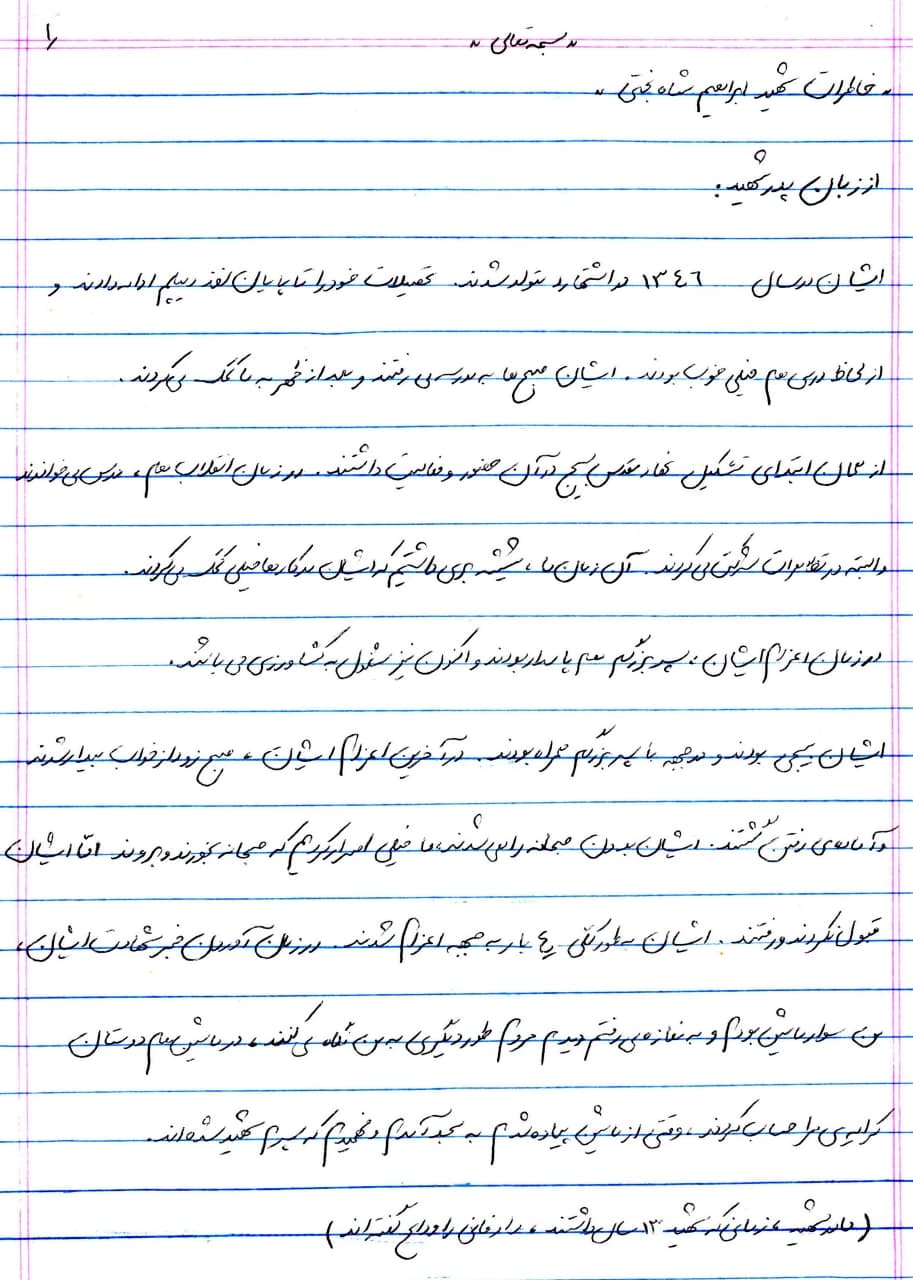 ۱
« بسمه تعالی »
« خاطرات شهید ابراهیم شاه بختی »
از زبان پدر شهید :
ایشان در سال ۱۳۴۶ در اشتهارد متولد شدند. تحصیلات خود را تا پایان اخذ دیپلم ادامه دادند و
از لحاظ درسی هم خیلی خوب بودند. ایشان صبح‌ها به مدرسه می رفتند و بعد از ظهر به ما کمک می‌کردند.
از همان ابتدای تشکیل نهاد مقدس بسیج در آن حضور و فعالیت داشتند. در زمان انقلاب هم، درس می‌خواندند
والبته در تظاهرات شرکت می‌کردند. آن زمان ما، شیشه بری داشتیم که ایشان در کارها خیلی کمک می‌کردند.
در زمان اعزام ایشان، پسر بزرگم هم پاسدار بودند و اکنون نیز مشغول به کشاورزی می باشد.
ایشان بسیجی بودند و در جبهه با پسر بزرگم همراه بودند. در آخرین اعزام ایشان، صبح زود از خواب بیدار شدند
و آماده‌ی رفتن گشتند. ایشان بدون صبحانه راهی شدند، ما خیلی اصرار کردیم که صبحانه بخورند و بروند امّا ایشان
قبول نکردند و رفتند. ایشان به طور کلّی ۴ بار به جبهه اعزام شدند. در زمان آوردن خبر شهادت ایشان،
من سوار ماشین بودم و به مغازه می رفتم دیدم مردم طور دیگری به من نگاه می کنند، در ماشین هم دوستان
کرایه‌ی مرا حساب کردند، وقتی از ماشین پیاده شدم به مسجد آمدم و فهمیدم که پسرم شهید شده‌اند.
(مادر شهید، زمانی که شهید ۱۳ سال داشتند، دار فانی را وداع گفته اند)